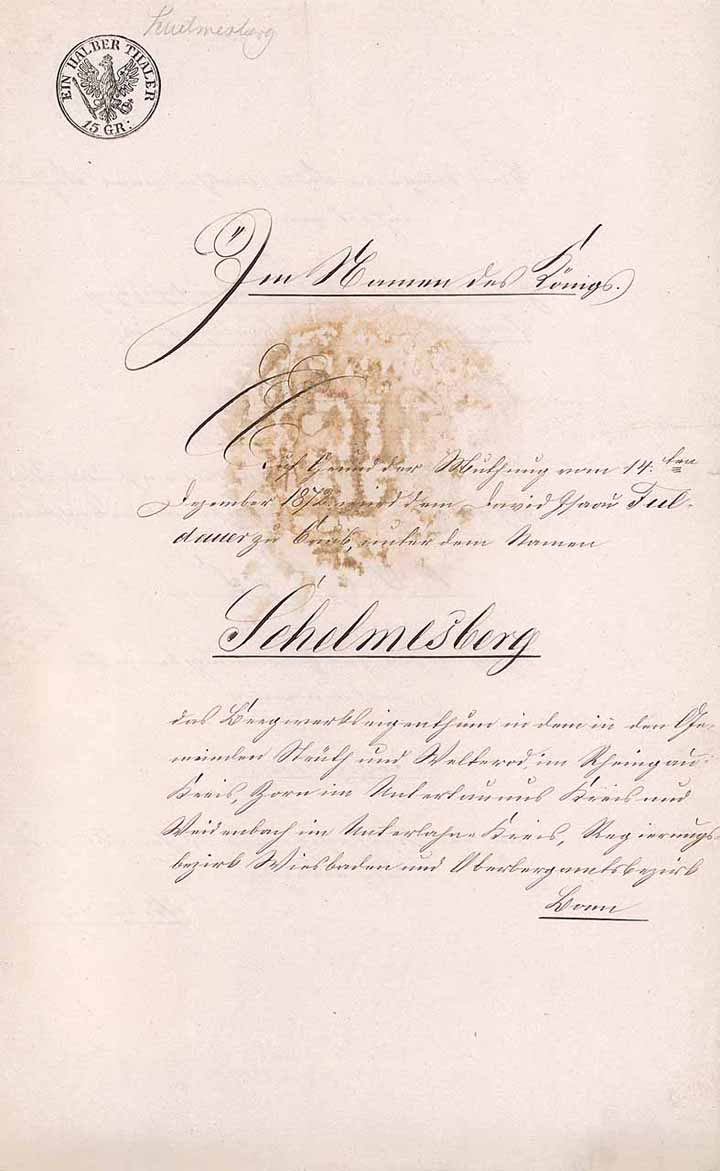 Schelmesberg
EIN HALBER THALER
15 GR:
Im Namen des Königs.
Auf Grund der Muthung vom 14.ten
Dezember 1872 wird dem David Isaac Ful-
dauer zu Caub, unter dem Namen
Schelmesberg
das Bergwerkseigenthum in dem in den Ge-
meinden Strüth und Welterod im Rheingau-
Kreis, Zorn im Untertaunus Kreis und
Weidenbach im Unterlahn-Kreis, Regierungs-
bezirk Wiesbaden und Oberbergamtsbezirk
Bonn